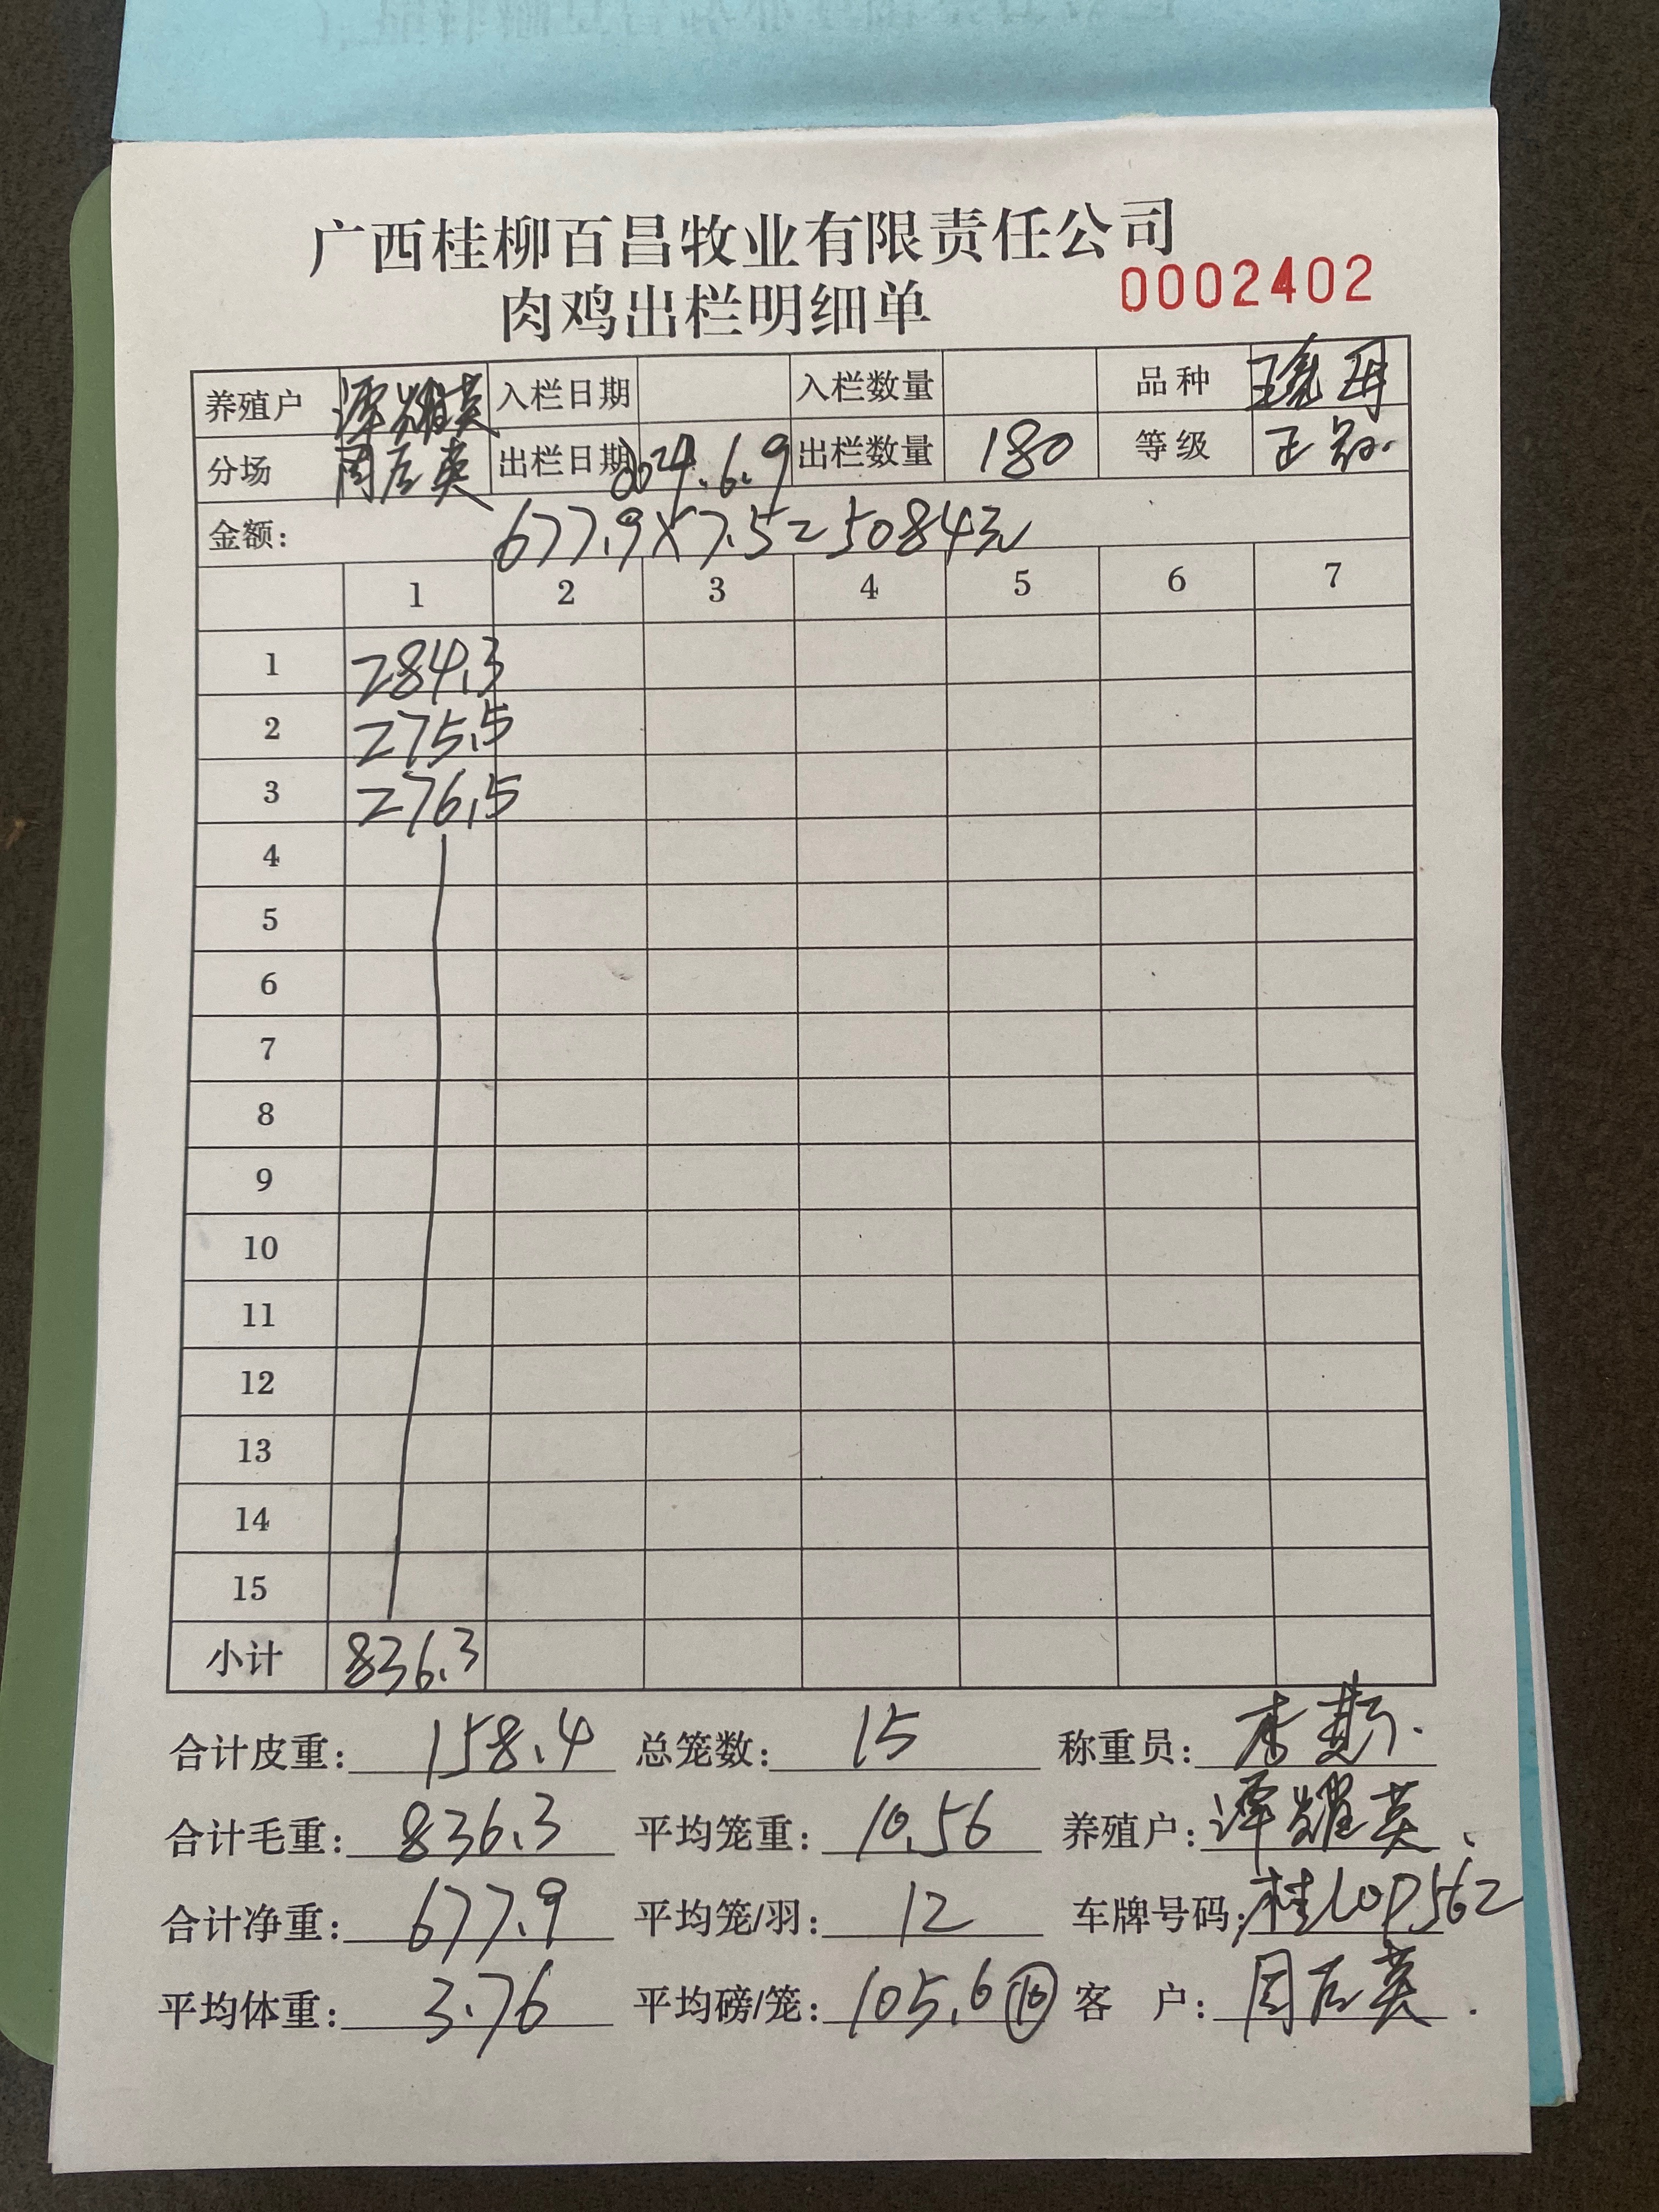 广西桂柳百昌牧业有限责任公司
肉鸡出栏明细单 0002402
养殖户 谭耀英 入栏日期 入栏数量 品种
分场 周左英 出栏日期 2024.6.9 出栏数量 180 等级 正
金额: 677.9×7.5=5084元
1 2 3 4 5 6 7
1 284.3
2 275.5
3 276.5
4
5
6
7
8
9
10
11
12
13
14
15
小计 836.3
合计皮重: 158.4 总笼数: 15 称重员:
合计毛重: 836.3 平均笼重: 10.56 养殖户: 谭耀英
合计净重: 677.9 平均笼/羽: 12 车牌号码: 桂L0P562
平均体重: 3.76 平均磅/笼: 105.6 客 户: 周左英